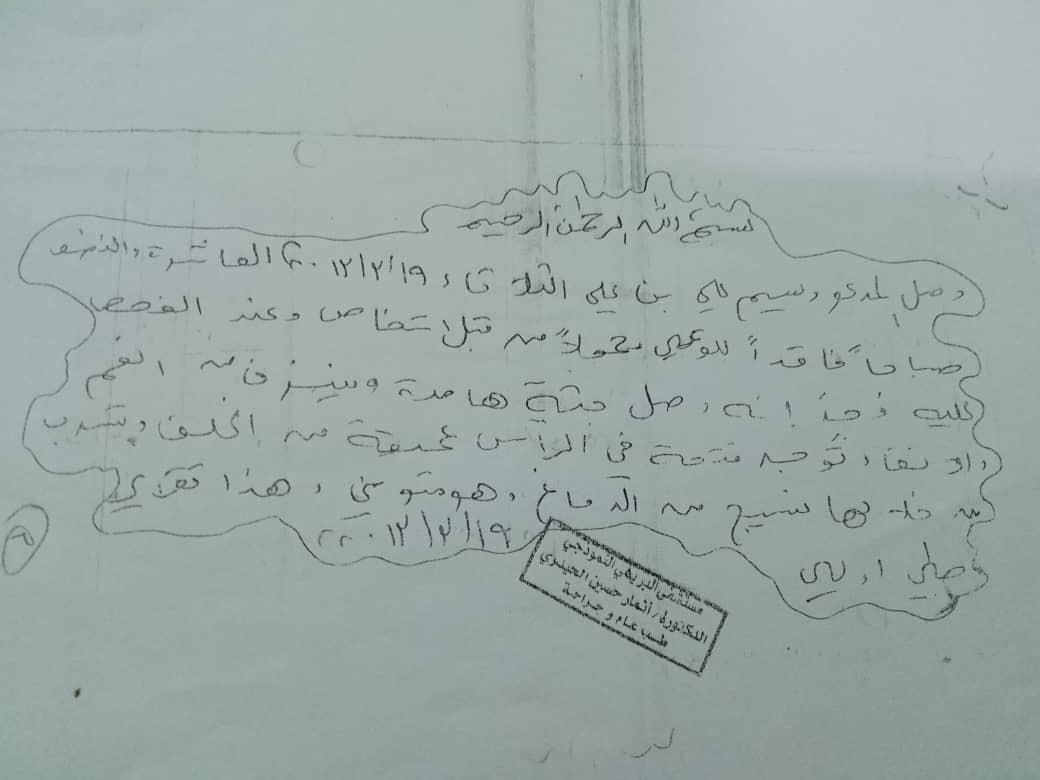 بسم الله الرحمن الرحيم
وصل المدعو وسيم علي بن علي الثلاثاء ٢٠١٢/٢/١٩ العاشرة والنصف
صباحاً فاقداً للوعي محمولاً من قبل اشخاص وعند الفحص
عليه وجد انه وصل جثة هامدة وينزف من الفم
والانف وتوجد فتحة في الرأس عميقة من الخلف وتسرب
من خلالها نسيج من الدماغ وهو متوفي وهذا تقريري
طبي اولي
٢٠١٢/٢/١٩
مستشفى الدريهمي النموذجي
الدكتورة/ أثمار حسين الحيدري
طب عام وجراحة